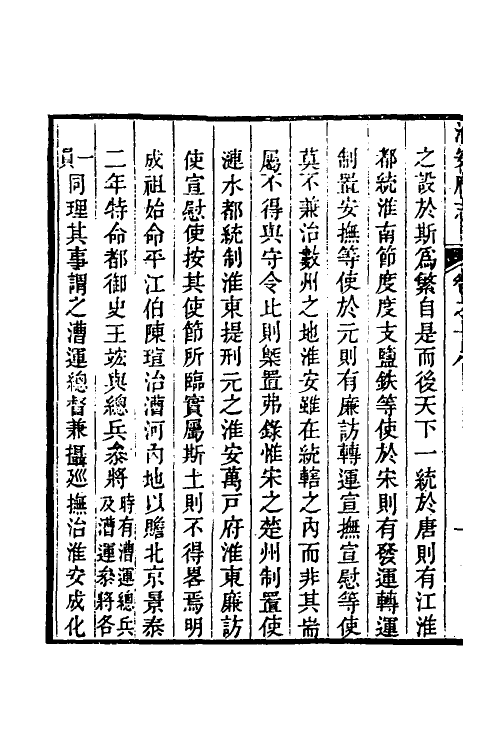 之設於斯爲繁自是而後天下一統於唐則有江淮
都統淮南節度度支鹽鉄等使於宋則有發運轉運
制置安撫等使於元則有廉訪轉運宣撫宣慰等使
莫不兼治數州之地淮安雖在統轄之內而非其耑
屬不得與守令比則槩置弗錄惟宋之楚州制置使
漣水都統制淮東提刑元之淮安萬戸府淮東廉訪
使宣慰使按其使節所臨實屬斯土則不得畧焉明
成祖始命平江伯陳瑄治漕河內地以贍北京景泰
二年特命都御史王竑與總兵叅將時有漕運總兵及漕運叅將各
一員同理其事謂之漕運總督兼攝廵撫治淮安成化